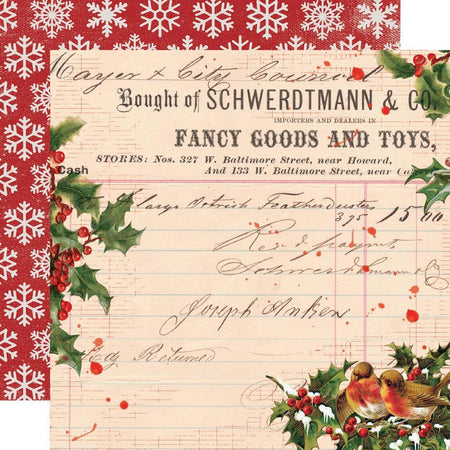 Mayor & City Council
Bought of SCHWERDTMANN & CO.
IMPORTERS AND DEALERS IN
FANCY GOODS AND TOYS,
STORES: Nos. 327 W. Baltimore Street, near Howard,
And 133 W. Baltimore Street, near
Cash
large Ostrich Featherdusters
3 75 15 00
Rec'd payment
Schwerdtmann & Co
Joseph
Returned